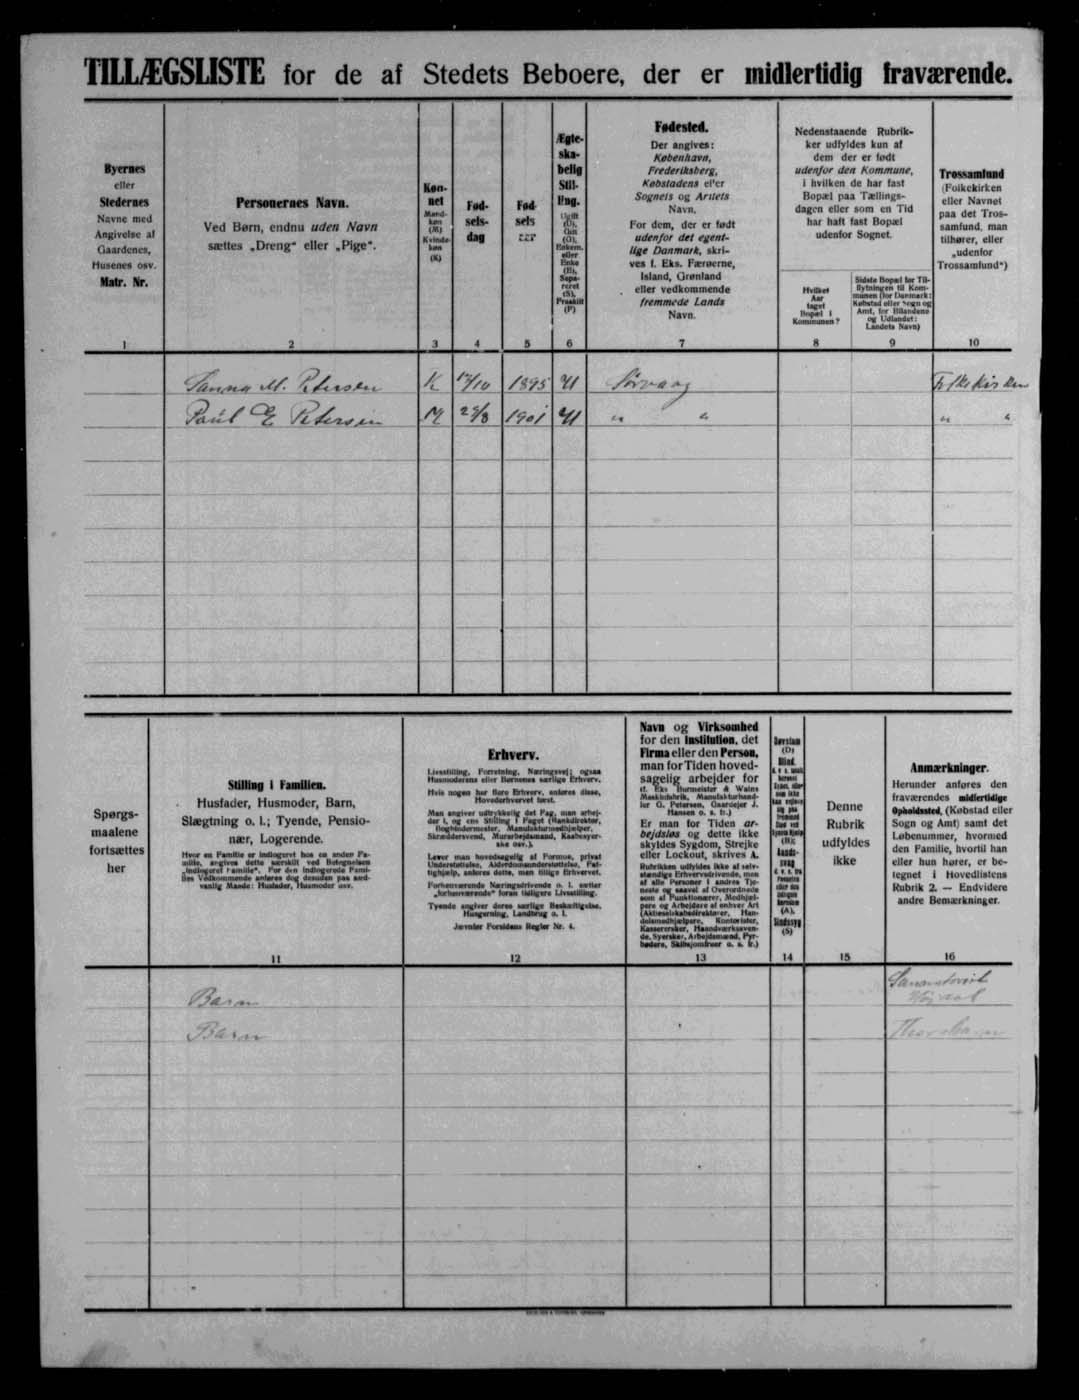 TILLÆGSLISTE for de af Stedets Beboere, der er midlertidig fraværende.
Byernes
eller
Stedernes
Navne med
Angivelse af
Gaardenes,
Husenes osv.
Matr. Nr.
1
Personernes Navn.
Ved Børn, endnu uden Navn
sættes „Dreng“ eller „Pige“.
2
Køn-
net
Mand-
køn
(M)
Kvinde-
køn
(K)
3
Fød-
sels-
dag
4
Fød
sels
aar
5
Ægte-
ska-
belig
Stil-
ling.
Ugift
(U),
Gift
(G),
Enkem.
eller
Enke
(E),
Sepa-
reret
(S),
Fraskilt
(F)
6
Fødested.
Der angives:
København,
Frederiksberg,
Købstadens eller
Sognets og Amtets
Navn.
For dem, der er født
udenfor det egent-
lige Danmark, skri-
ves f. Eks. Færøerne,
Island, Grønland
eller vedkommende
fremmede Lands
Navn.
7
Nedenstaaende Rubrik-
ker udfyldes kun af
dem der er født
udenfor den Kommune,
i hvilken de har fast
Bopæl paa Tællings-
dagen eller som en Tid
har haft fast Bopæl
udenfor Sognet.
Hvilket
Aar
taget
Bopæl i
Kommunen?
8
Sidste Bopæl før Til-
flytningen til Kom-
munen (for Danmark:
Købstad eller Sogn og
Amt, for Bilandene
og Udlandet:
Landets Navn)
9
Trossamfund
(Folkekirken
eller Navnet
paa det Tros-
samfund, man
tilhører, eller
„udenfor
Trossamfund“)
10
Sanna M. Petersen K 17/10 1895 U Sørvaag Folkekirken
Poul E Petersen M 25/8 1901 U " " " "
Spørgs-
maalene
fortsættes
her
Stilling i Familien.
Husfader, Husmoder, Barn,
Slægtning o. l.; Tyende, Pensio-
nær, Logerende.
Hvor en Familie er indlogeret hos en anden Fa-
milie, angives dette særskilt ved Betegnelsen
„indlogeret Familie“. For den indlogerede Fami-
lies Vedkommende anføres dog desuden paa sæd-
vanlig Maade: Husfader, Husmoder osv.
11
Erhverv.
Livsstilling, Forretning, Næringsvej; ogsaa
Husmoderens eller Børnenes særlige Erhverv.
Hvis nogen har flere Erhverv, anføres disse,
Hovederhvervet først.
Man angiver udtrykkelig det Fag, man arbej-
der i, og ens Stilling i Faget (Bankdirektør,
Bogbindermester, Manufakturmedhjælper,
Skræddersvend, Murarbejdsmand, Kasbesyer-
ske osv.).
Lever man hovedsagelig af Formue, privat
Understøttelse, Alderdomsunderstøttelse, Fat-
tighjælp, anføres dette, men tillige Erhvervet.
Forhenværende Næringsdrivende o. l. sætter
„forhenværende“ foran tidligere Livsstilling.
Tyende angiver deres særlige Beskæftigelse,
Husgerning, Landbrug o. l.
Jævnfør Forsidens Regler Nr. 4.
12
Navn og Virksomhed
for den Institution, det
Firma eller den Person,
man for Tiden hoved-
sagelig arbejder for
(f. Eks Burmeister & Wains
Maskinfabrik, Manufakturhand-
ler G. Petersen, Gaardejer J.
Hansen o. s. fr.)
Er man for Tiden ar-
bejdsløs og dette ikke
skyldes Sygdom, Strejke
eller Lockout, skrives A.
Rubrikken udfyldes ikke af selv-
stændige Erhvervsdrivende, men
af alle Personer i andres Tje-
neste og saavel af Overordnede
som af Funktionærer, Medhjæl-
pere og Arbejdere af enhver Art
(Aktieselskabsdirektører, Han-
delsmedhjælpere, Kontorister,
Kasserersker, Haandværkssven-
de, Syersker, Arbejdsmænd, Fyr-
bødere, Skibsjomfruer o. s. fr.)
13
14
Denne
Rubrik
udfyldes
ikke
15
Anmærkninger.
Herunder anføres den
fraværendes midlertidige
Opholdssted, (Købstad eller
Sogn og Amt) samt det
Løbenummer, hvormed
den Familie, hvortil han
eller hun hører, er be-
tegnet i Hovedlistens
Rubrik 2. — Endvidere
andre Bemærkninger.
16
Barn
Barn Thorshavn